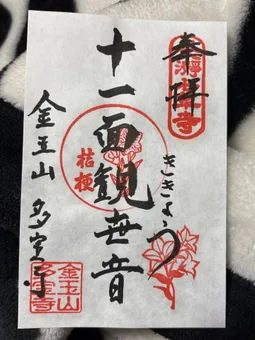 奉拝
十一面観世音
桔梗
ききょう
金玉山 多宝寺
金玉山
多宝寺